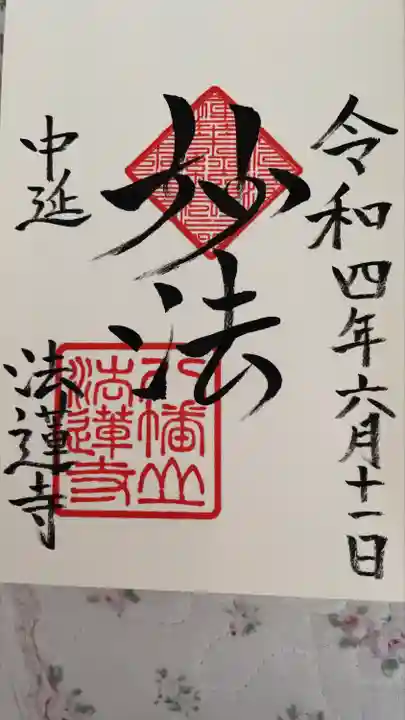 令和四年六月十一日
妙法
中延
法蓮寺
八幡山
法蓮寺